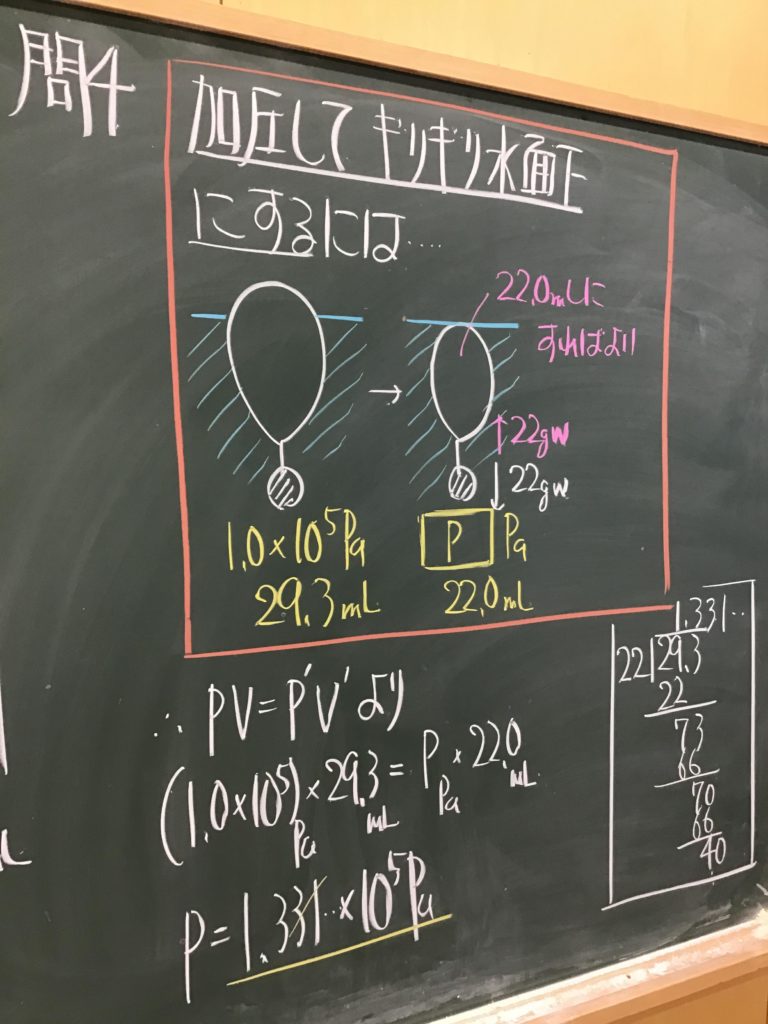 問4
加圧して ギリギリ水面下
にするには‥‥
22.0mLに
すればよい
→
↑22gw
↓22gw
1.0×10⁵Pa
P Pa
29.3mL
22.0mL
∴ PV=P'V'より
(1.0×10⁵)Pa×29.3mL=P Pa×22.0mL
P=1.331‥×10⁵Pa
1.331‥
22)29.3
22
73
66
70
66
40